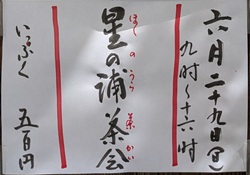 六月二十九日(日)
九時~十六時
星の浦茶会
ほしのうら茶かい
いっぷく 五百円